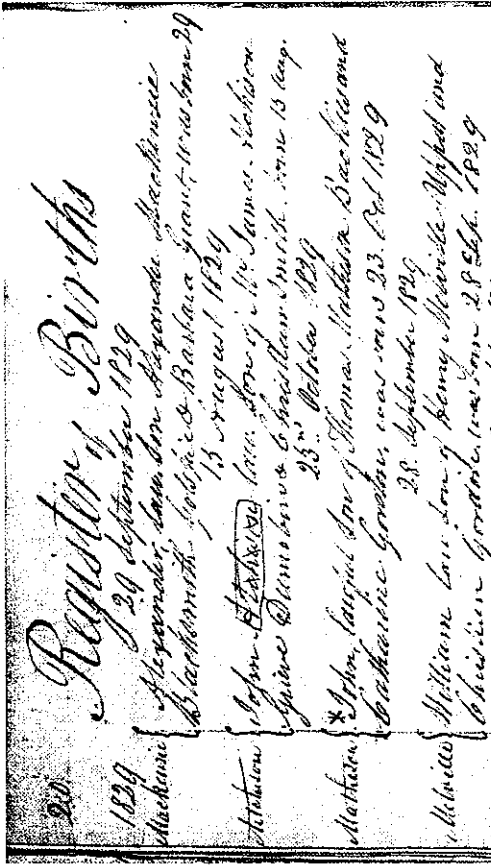 20 Register of Births
1829 29 September 1829
Mackenzie Alexander lau. son Alexander Mackenzie
Blacksmith & Barbara Grant was born 29
13 August 1829
John lau. Son of Mr. James
Grieve & Christian Smith born 13 Aug.
23rd October 1829
Mathason * John, lawful Son of Thomas Backis and
Catharine Gordon was born 23. Oct 1829
28 September 1829
Melville William law. Son of Henry Melville and
Christian Gordon was born 28 Sep. 1829